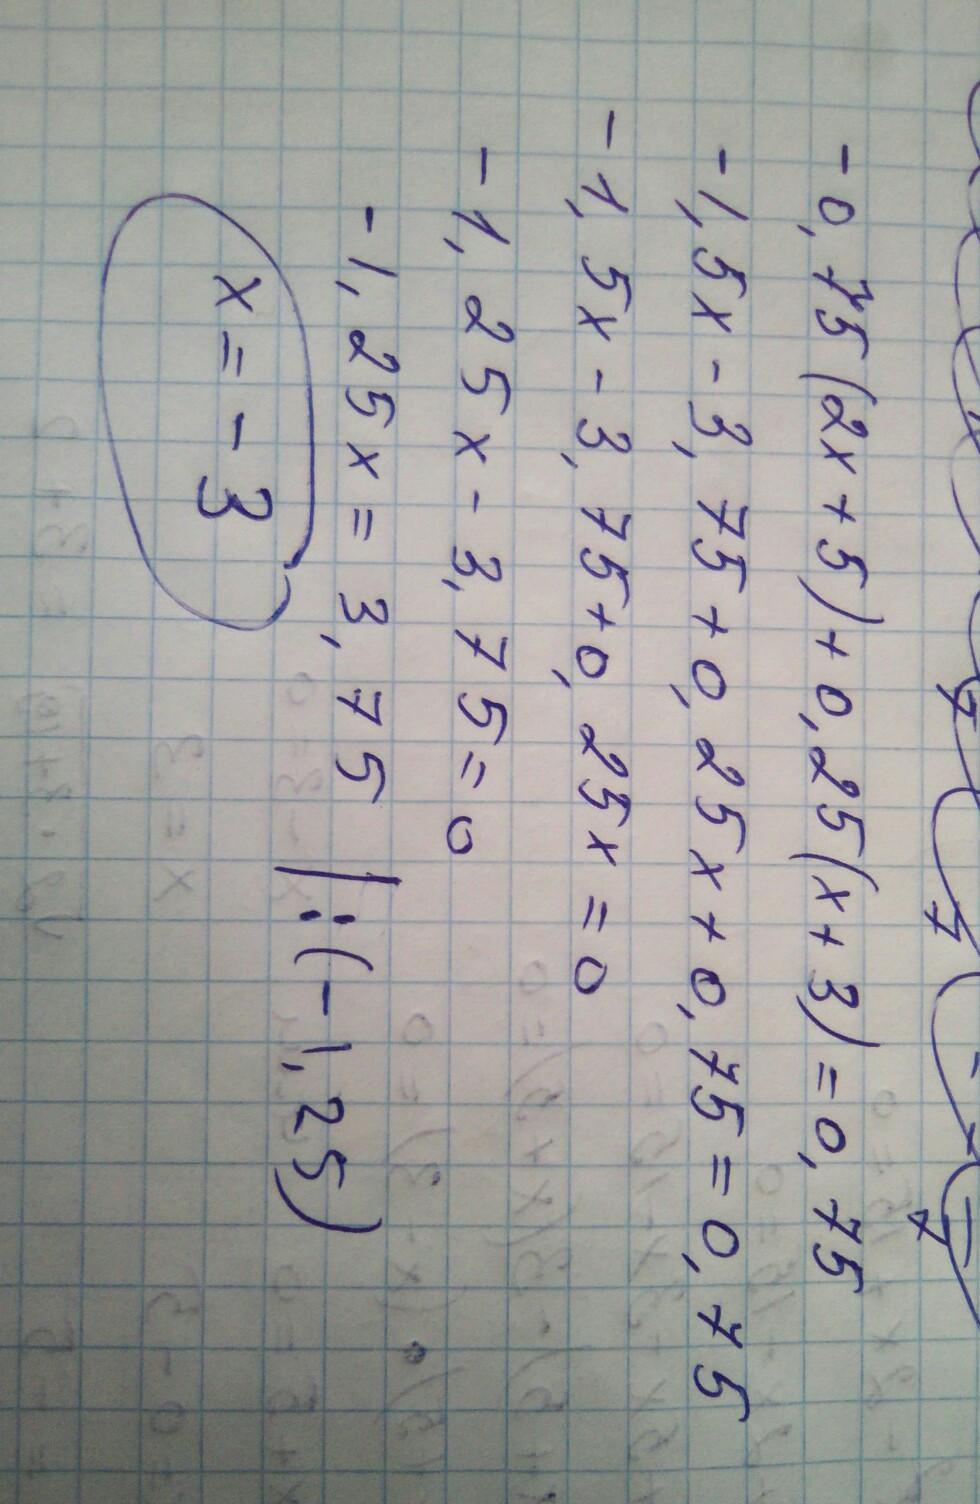 -0,75(2x+5)+0,25(x+3)=0,75
-1,5x-3,75+0,25x+0,75=0,75
-1,5x-3,75+0,25x=0
-1,25x-3,75=0
-1,25x=3,75 |:(-1,25)
x=-3